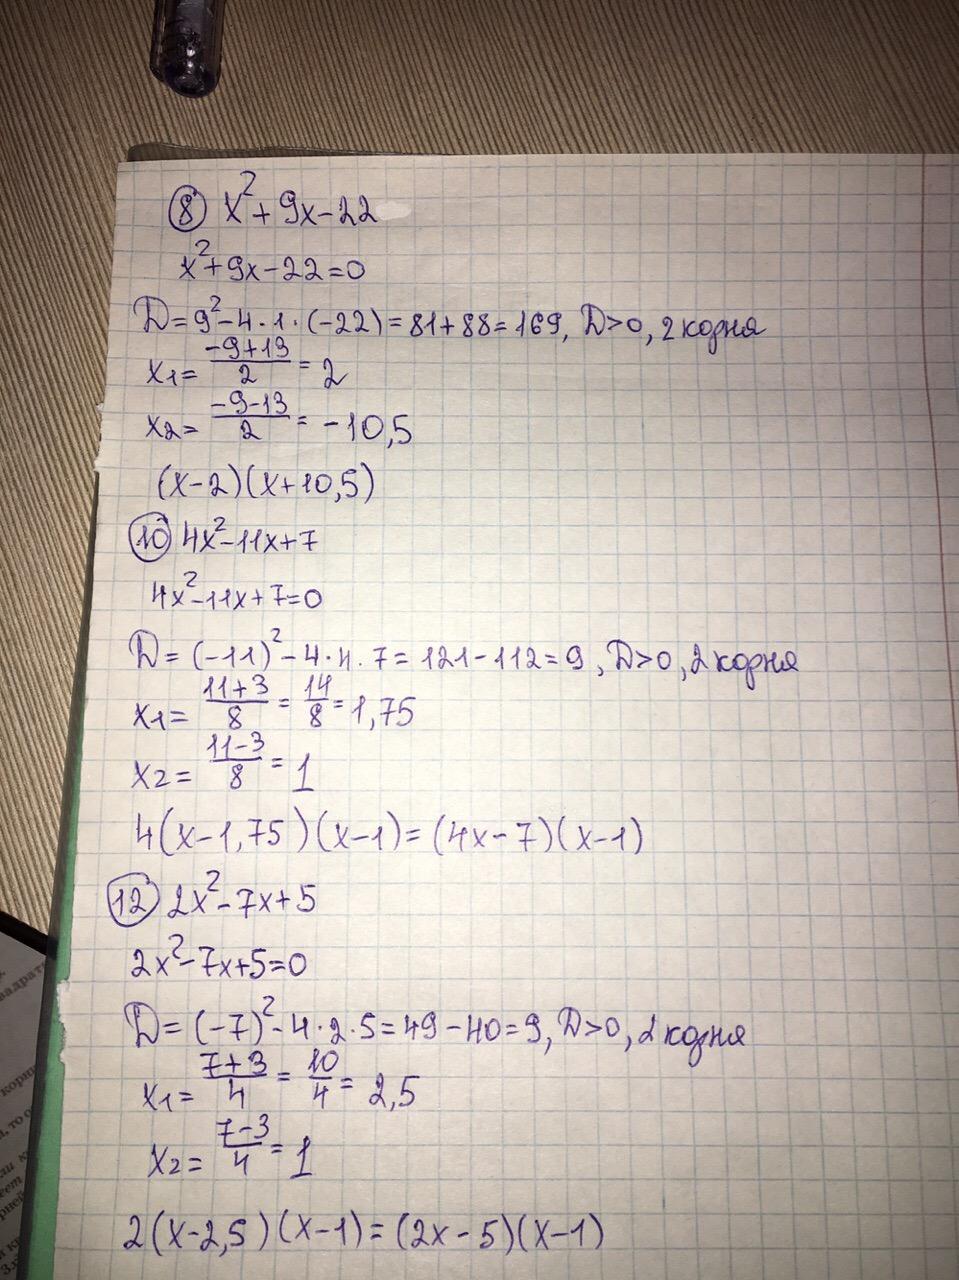 ⑧ x² + 9x - 22
x² + 9x - 22 = 0
D = 9² - 4 · 1 · (-22) = 81 + 88 = 169, D > 0, 2 корня
x₁ = (-9+13)/2 = 2
x₂ = (-9-13)/2 = -10,5
(x-2)(x+10,5)
⑩ 4x² - 11x + 7
4x² - 11x + 7 = 0
D = (-11)² - 4 · 4 · 7 = 121 - 112 = 9, D > 0, 2 корня
x₁ = (11+3)/8 = 14/8 = 1,75
x₂ = (11-3)/8 = 1
4(x-1,75)(x-1) = (4x-7)(x-1)
⑫ 2x² - 7x + 5
2x² - 7x + 5 = 0
D = (-7)² - 4 · 2 · 5 = 49 - 40 = 9, D > 0, 2 корня
x₁ = (7+3)/4 = 10/4 = 2,5
x₂ = (7-3)/4 = 1
2(x-2,5)(x-1) = (2x-5)(x-1)